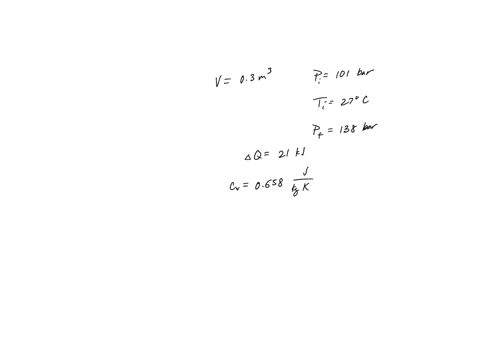 V = 0.3 m³
Pᵢ = 101 bar
Tᵢ = 27° C
P_f = 138 bar
ΔQ = 21 kJ
Cᵥ = 0.658 J / kg K